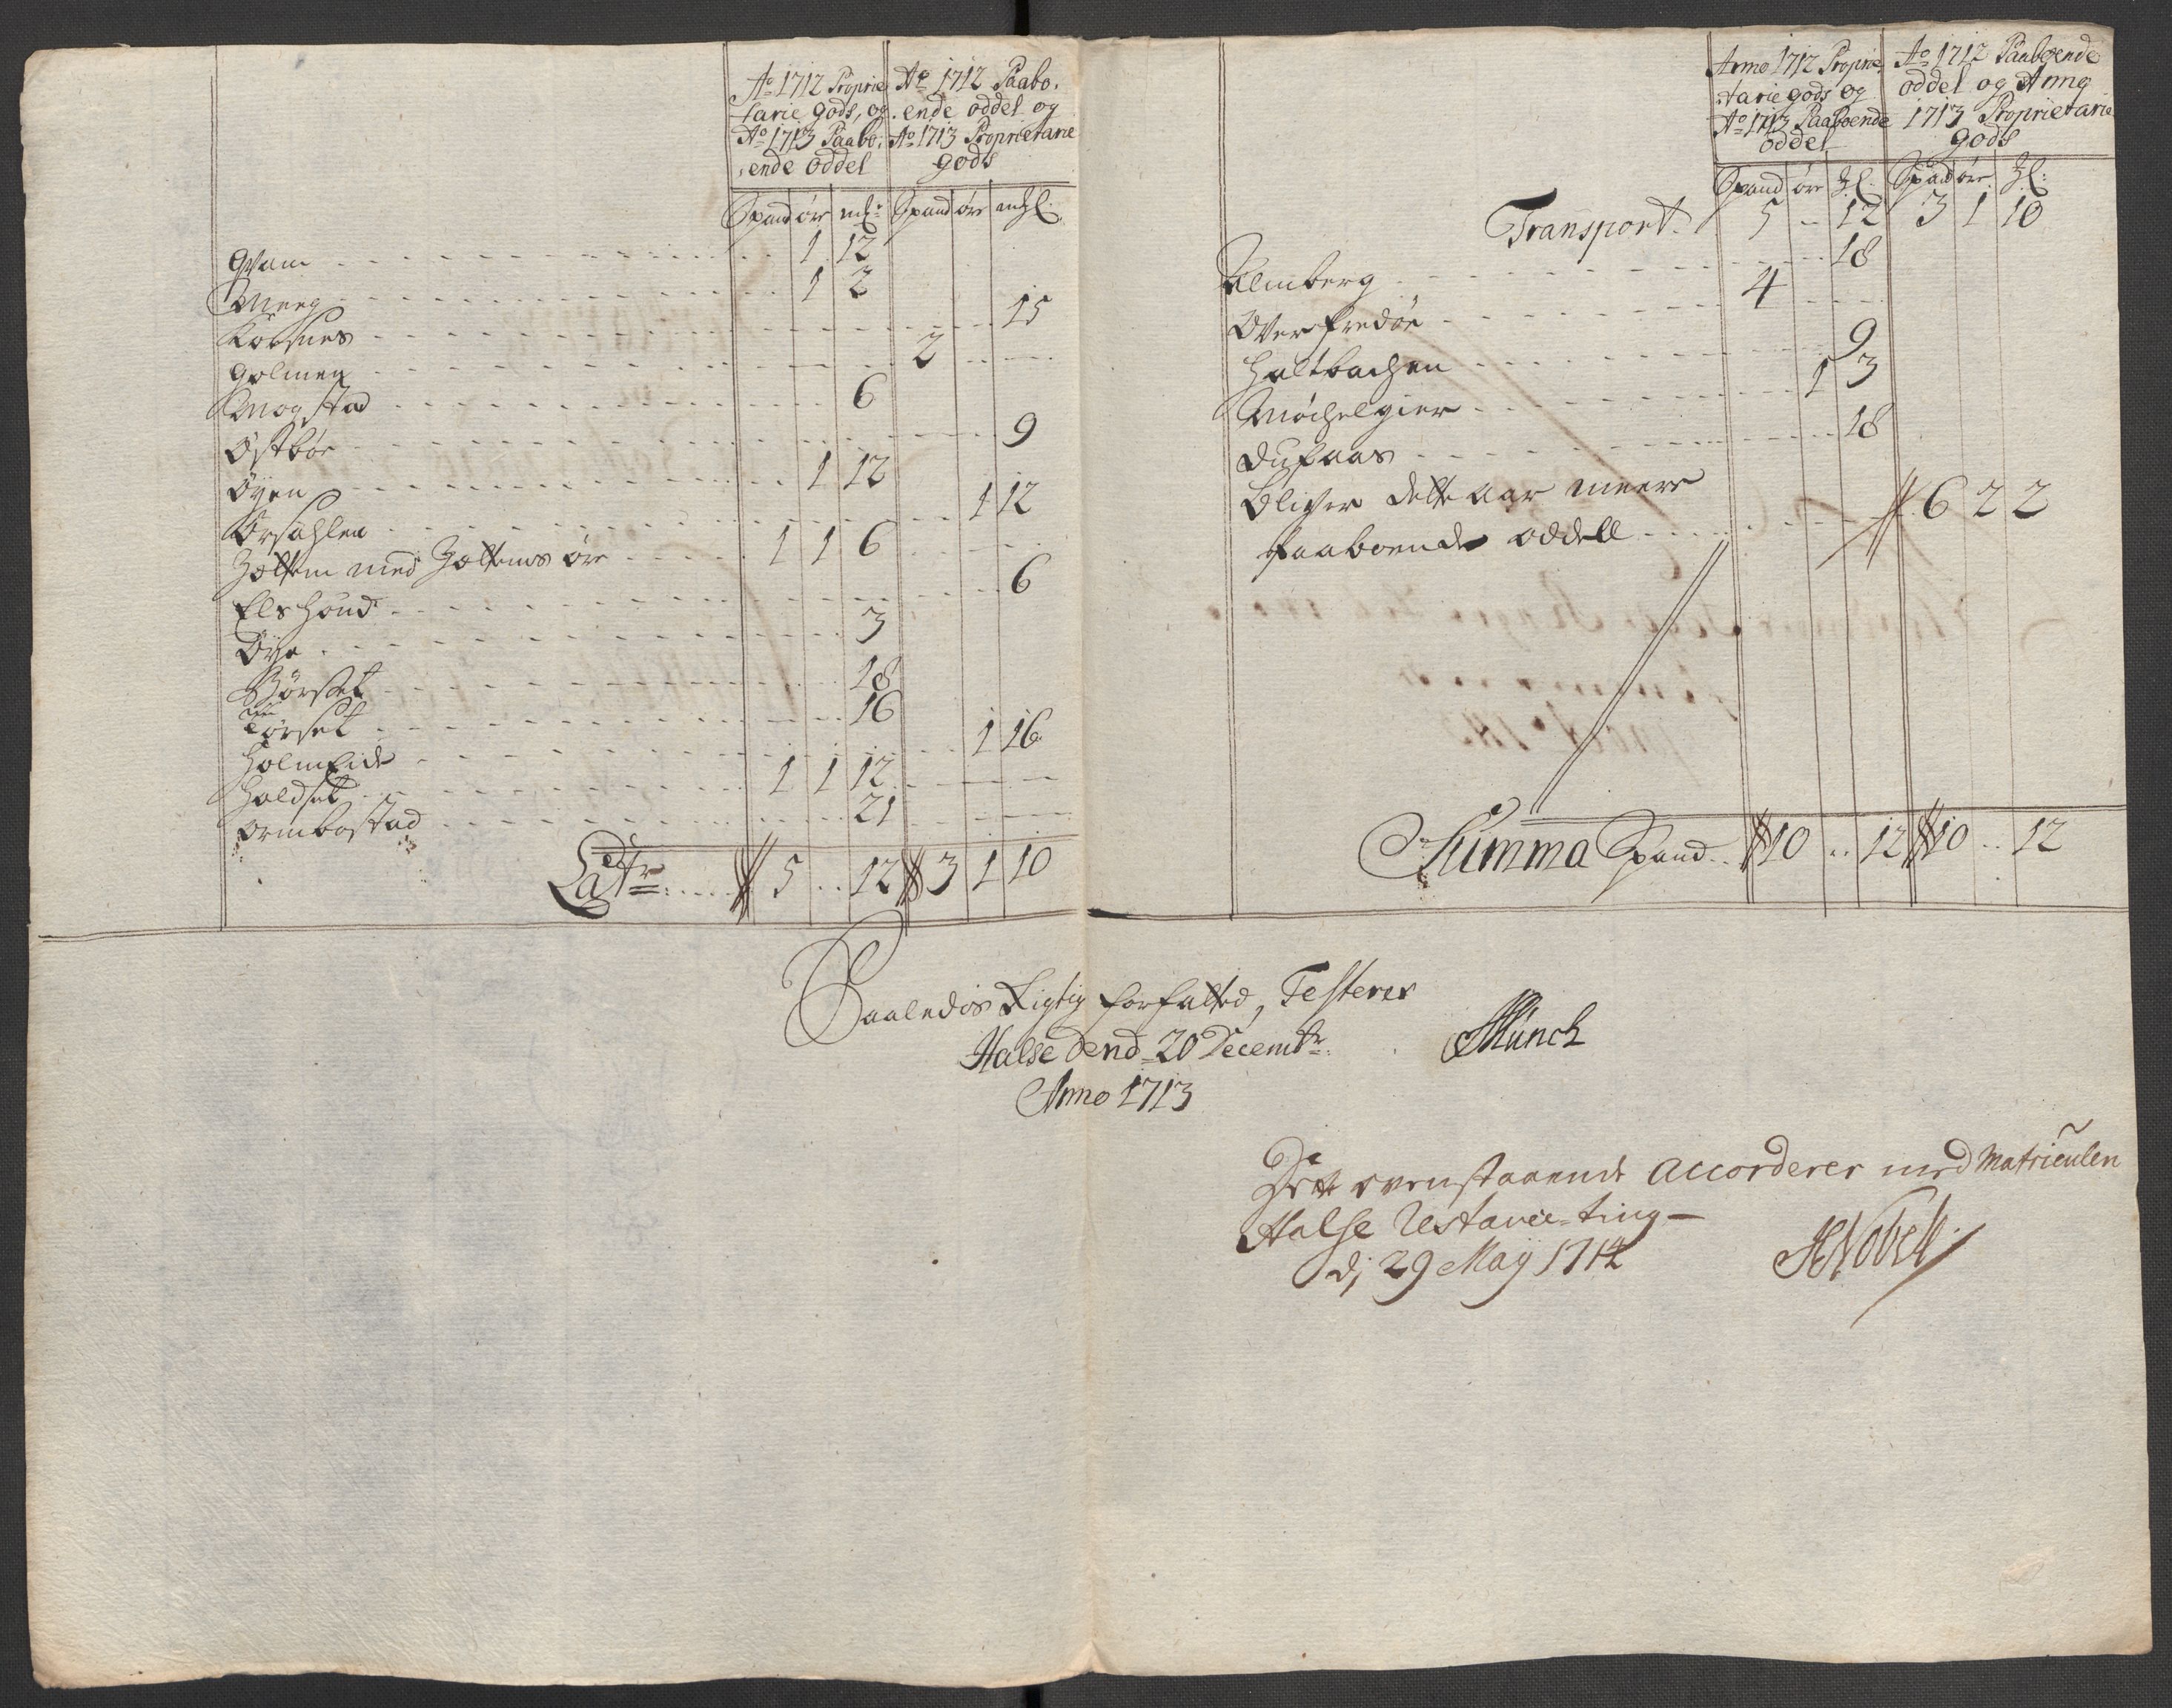 Ao 1712 Proprie
tarie gods, og
Ao 1713 Paabo,
,ende oddel
Ao 1712 Paabo,
ende oddel og
Ao 1713 Proprietarie
gods
Spand øre mkl: Spand øre mkl:
Qvam 1 12
Meeg 1 2
Korsnes 15
Golmen 2
Mogstad 6
Østbøe 9
Øyen 1 12
Ørsahlen 1 12
Zoltem med Zoltems øre 1 1 6
Elshoud 6
Øye 3
Børset 18
Torset 16
Holmeide 1 16
Holdset 1 1 12
Ormbostad 21
Latr 5 .. 12 3 1 10
Anno 1712 Proprie,
tarie gods og
Ao 1713 Paaboende
oddel
Ao 1712 Paaboende
oddel og Anno
1713 Proprietarie
gods
Spand øre mkl: Spand øre mkl:
Transport 5 .. 12 3 1 10
Almberg 18
Ofverfredøe 4
Holtbachen 9
Møchelgier 1 3
Dufaas 18
Blifver dette aar meere
paaboende oddell 6 2 2
Summa Spand 10 .. 12 10 .. 12
Saaledis Rigtig forfatted, Testerer
Halse dend 20 Decembr:
Anno 1713
Münch
Dette ovenstaaende accorderer med Matriculen
Halse Vestarie-ting
d; 29 Maÿ 1714
HNobell